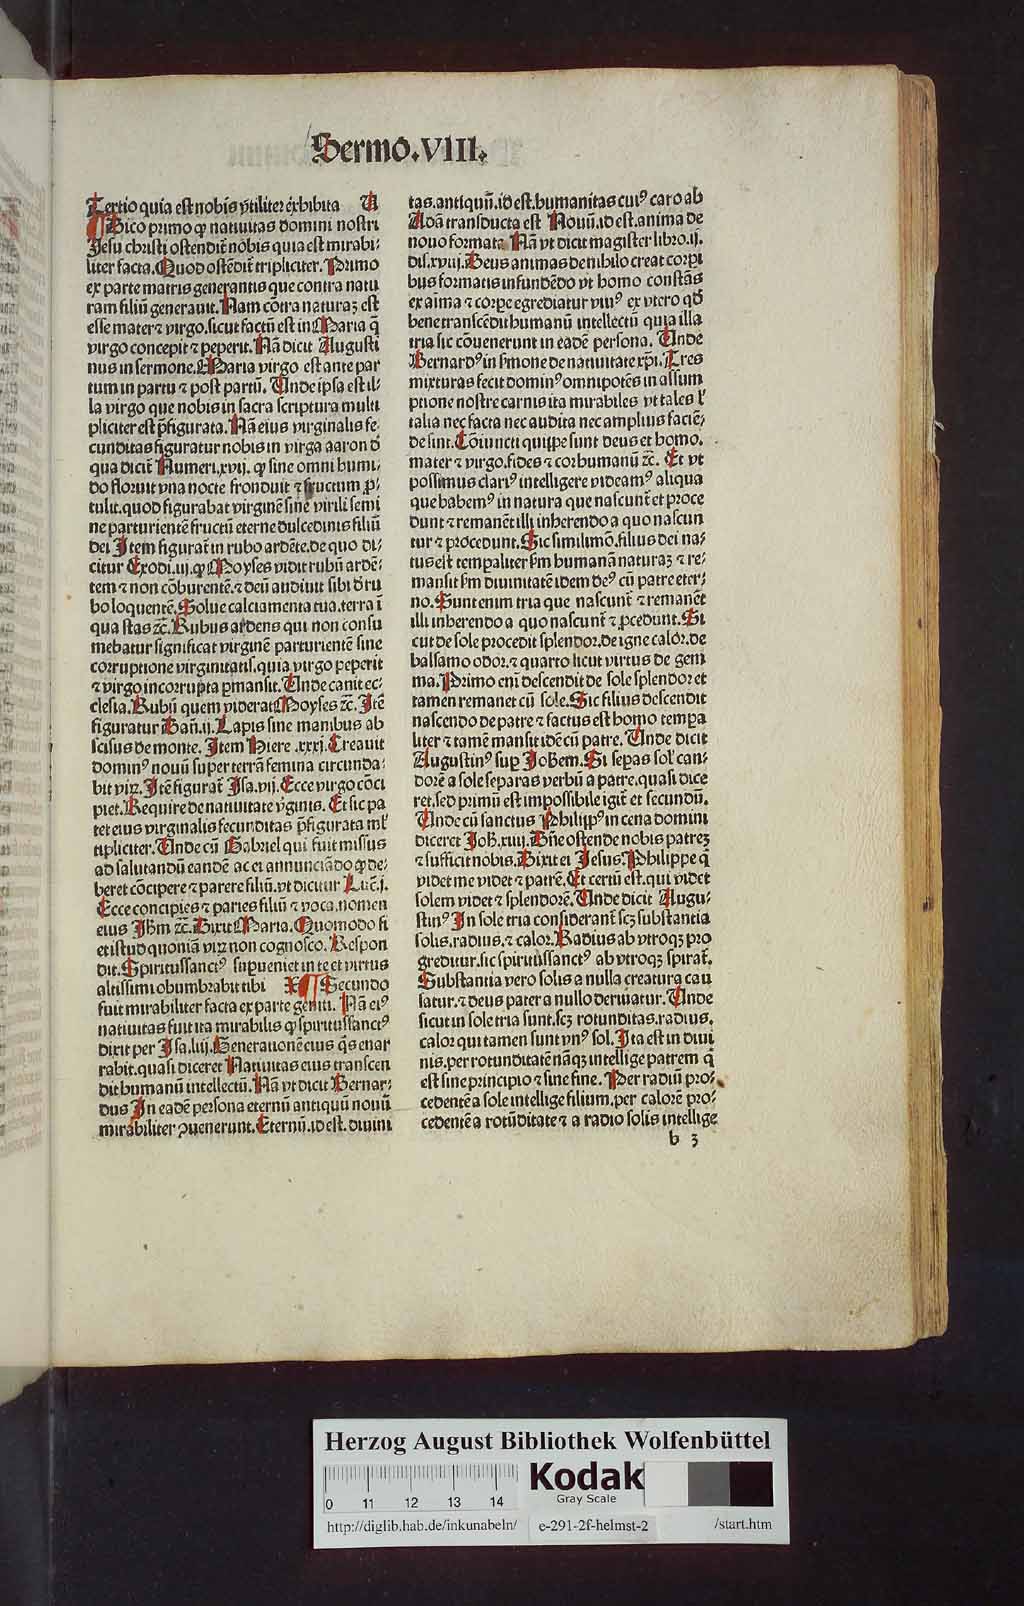 Sermo.VIII.
Tertio quia est nobis vtiliter exhibita U
¶ Dico primo ꝙ natiuitas domini nostri
Jesu christi ostendit̄ nobis quia est mirabi⸗
liter facta.Quod ostēdit̄ tripliciter.Primo
ex parte matris generantis que contra natu
ram filiū generauit.Nam cōtra naturaꝫ est
esse mater ⁊ virgo.sicut factū est in Maria q̄
virgo concepit ⁊ peperit.Nā dicit Augusti
nus in sermone.Maria virgo est ante par
tum in partu ⁊ post partū.Unde ipsa est il⸗
la virgo que nobis in sacra scriptura multi
pliciter est p̄figurata.Nā eius virginalis fe⸗
cunditas figuratur nobis in virga aaron d̄
qua dicit̄ Numeri.xvij. ꝙ sine omni humi⸗
do floruit vna nocte fronduit ⁊ fructum ꝓ⸗
tulit.quod figurabat virginē sine virili semi
ne parturientē fructū eterne dulcedinis filiū
dei Item figurat̄ in rubo ardēte.de quo di⸗
citur Exodi.iij.ꝙ Moyses vidit rubū ardē⸗
tem ⁊ non cōburentē.⁊ deū audiuit sibi d̄ ru
bo loquentē.Solue calciamenta tua.terra ī
qua stas ⁊c̄.Rubus ardens qui non consu
mebatur significat virginē parturientē sine
corruptione virginitatis.quia virgo peperit
⁊ virgo incorrupta ꝑmansit.Unde canit ec⸗
clesia.Rubū quem viderat Moyses ⁊c̄.Itē
figuratur Dañ.ij.Lapis sine manibus ab
scisus de monte.Item Hiere.xxxj.Creauit
dominꝰ nouū super terrā femina circunda⸗
bit viꝝ.Itē figurat̄ Isa.vij.Ecce virgo cōci
piet.Require de natiuitate v̄ginis.Et sic pa
tet eius virginalis fecunditas p̄figurata ml̄
tipliciter.Unde cū Gabriel qui fuit missus
ad salutandū eandē ac ei annunciādo ꝙ de⸗
beret cōcipere ⁊ parere filiū.vt dicitur Luc̄.j.
Ecce concipies ⁊ paries filiū ⁊ voca.nomen
eius Jhm̄ ⁊c̄.Dixit Maria.Quomodo fi
et istud quoniā viꝝ non cognosco.Respon
dit.Spiritussanctꝰ supueniet in te et virtus
altissimi obumbrabit tibi X ¶ Secundo
fuit mirabiliter facta ex parte geniti.Nā eiꝰ
natiuitas fuit ita mirabilis ꝙ spiritussanctꝰ
dixit per Isa.liij.Generationē eius q̄s enar
rabit.quasi diceret Natiuitas eius transcen
dit humanū intellectū.Nā vt dicit Bernar⸗
dus In eadē persona eternū antiquū nouū
mirabiliter ꝯuenerunt.Eternū.id est.diuini
tas.antiquū.id est.humanitas cuiꝰ caro ab
Adā transducta est Nouū.id est.anima de
nouo formata Nā vt dicit magister libro.ij.
dis.xviij.Deus animas de nihilo creat corpi
bus formatis infundēdo vt homo constās
ex aīma ⁊ corpe egrediatur viuꝰ ex vtero qd̄
bene transcēdit humanū intellectū quia illa
tria sic cōuenerunt in eadē persona.Unde
Bernardꝰ in s̄mone de natiuitate xp̄i.Tres
mixturas fecit dominꝰ omnipotēs in assum
ptione nostre carnis ita mirabiles vt tales l̓
talia nec facta nec audita nec amplius faciē⸗
de sint.Cōiuncti quippe sunt deus et homo.
mater ⁊ virgo.fides ⁊ cor humanū ⁊c̄. Et vt
possimus clariꝰ intelligere videamꝰ aliqua
que habemꝰ in natura que nascunt̄ et proce
dunt ⁊ remanēt illi inherendo a quo nascun
tur ⁊ procedunt.Sic similimō.filius dei na⸗
tus est tempaliter s̄m humanā naturaꝫ ⁊ re⸗
mansit s̄m diuinitatē idem deꝰ cū patre eter⸗
no.Sunt enim tria que nascunt̄ ⁊ remanēt
illi inherendo a quo nascunt̄ ⁊ ꝓcedunt.Si
cut de sole procedit splendor.de igne calor.de
balsamo odor.⁊ quarto sicut virtus de gem
ma.Primo eni̅ descendit de sole splendor et
tamen remanet cū sole.Sic filius descendit
nascendo de patre ⁊ factus est homo tempa
liter ⁊ tamē mansit idē cū patre.Unde dicit
Augustinꝰ sup Johem.Si sepas sol̓ can⸗
dorē a sole separas verbū a patre.quasi dice
ret.sed primū est impossibile igit̄ et secundū.
Unde cū sanctus Philippꝰ in cena domini
diceret Joh.xiiij.Dn̄e ostende nobis patreꝫ
⁊ sufficit nobis.Dixit ei Jesus.Philippe q̄
videt me videt ⁊ patrē.Et certū est.qui videt
solem videt ⁊ splendorē.Unde dicit Augu⸗
stinꝰ In sole tria considerant̄ scꝫ substantia
solis.radius.⁊ calor.Radius ab vtroqꝫ pro
greditur.sic spiritussanctꝰ ab vtroqꝫ spirat̄.
Substantia vero solis a nulla creatura cau
satur.⁊ deus pater a nullo deriuatur.Unde
sicut in sole tria sunt.scꝫ rotunditas.radius.
calor qui tamen sunt vnꝰ sol.Ita est in diui
nis.per rotunditatē nāqꝫ intellige patrem q̄
est sine principio ⁊ sine fine.Per radiū pro⸗
cedentē a sole intellige filium.per calorē pro⸗
cedentē a rotūditate ⁊ a radio solis intellige
b 3
Herzog August Bibliothek Wolfenbüttel
0 11 12 13 14
Kodak
Gray Scale
http://diglib.hab.de/inkunabeln/ e-291-2f-helmst-2 /start.htm